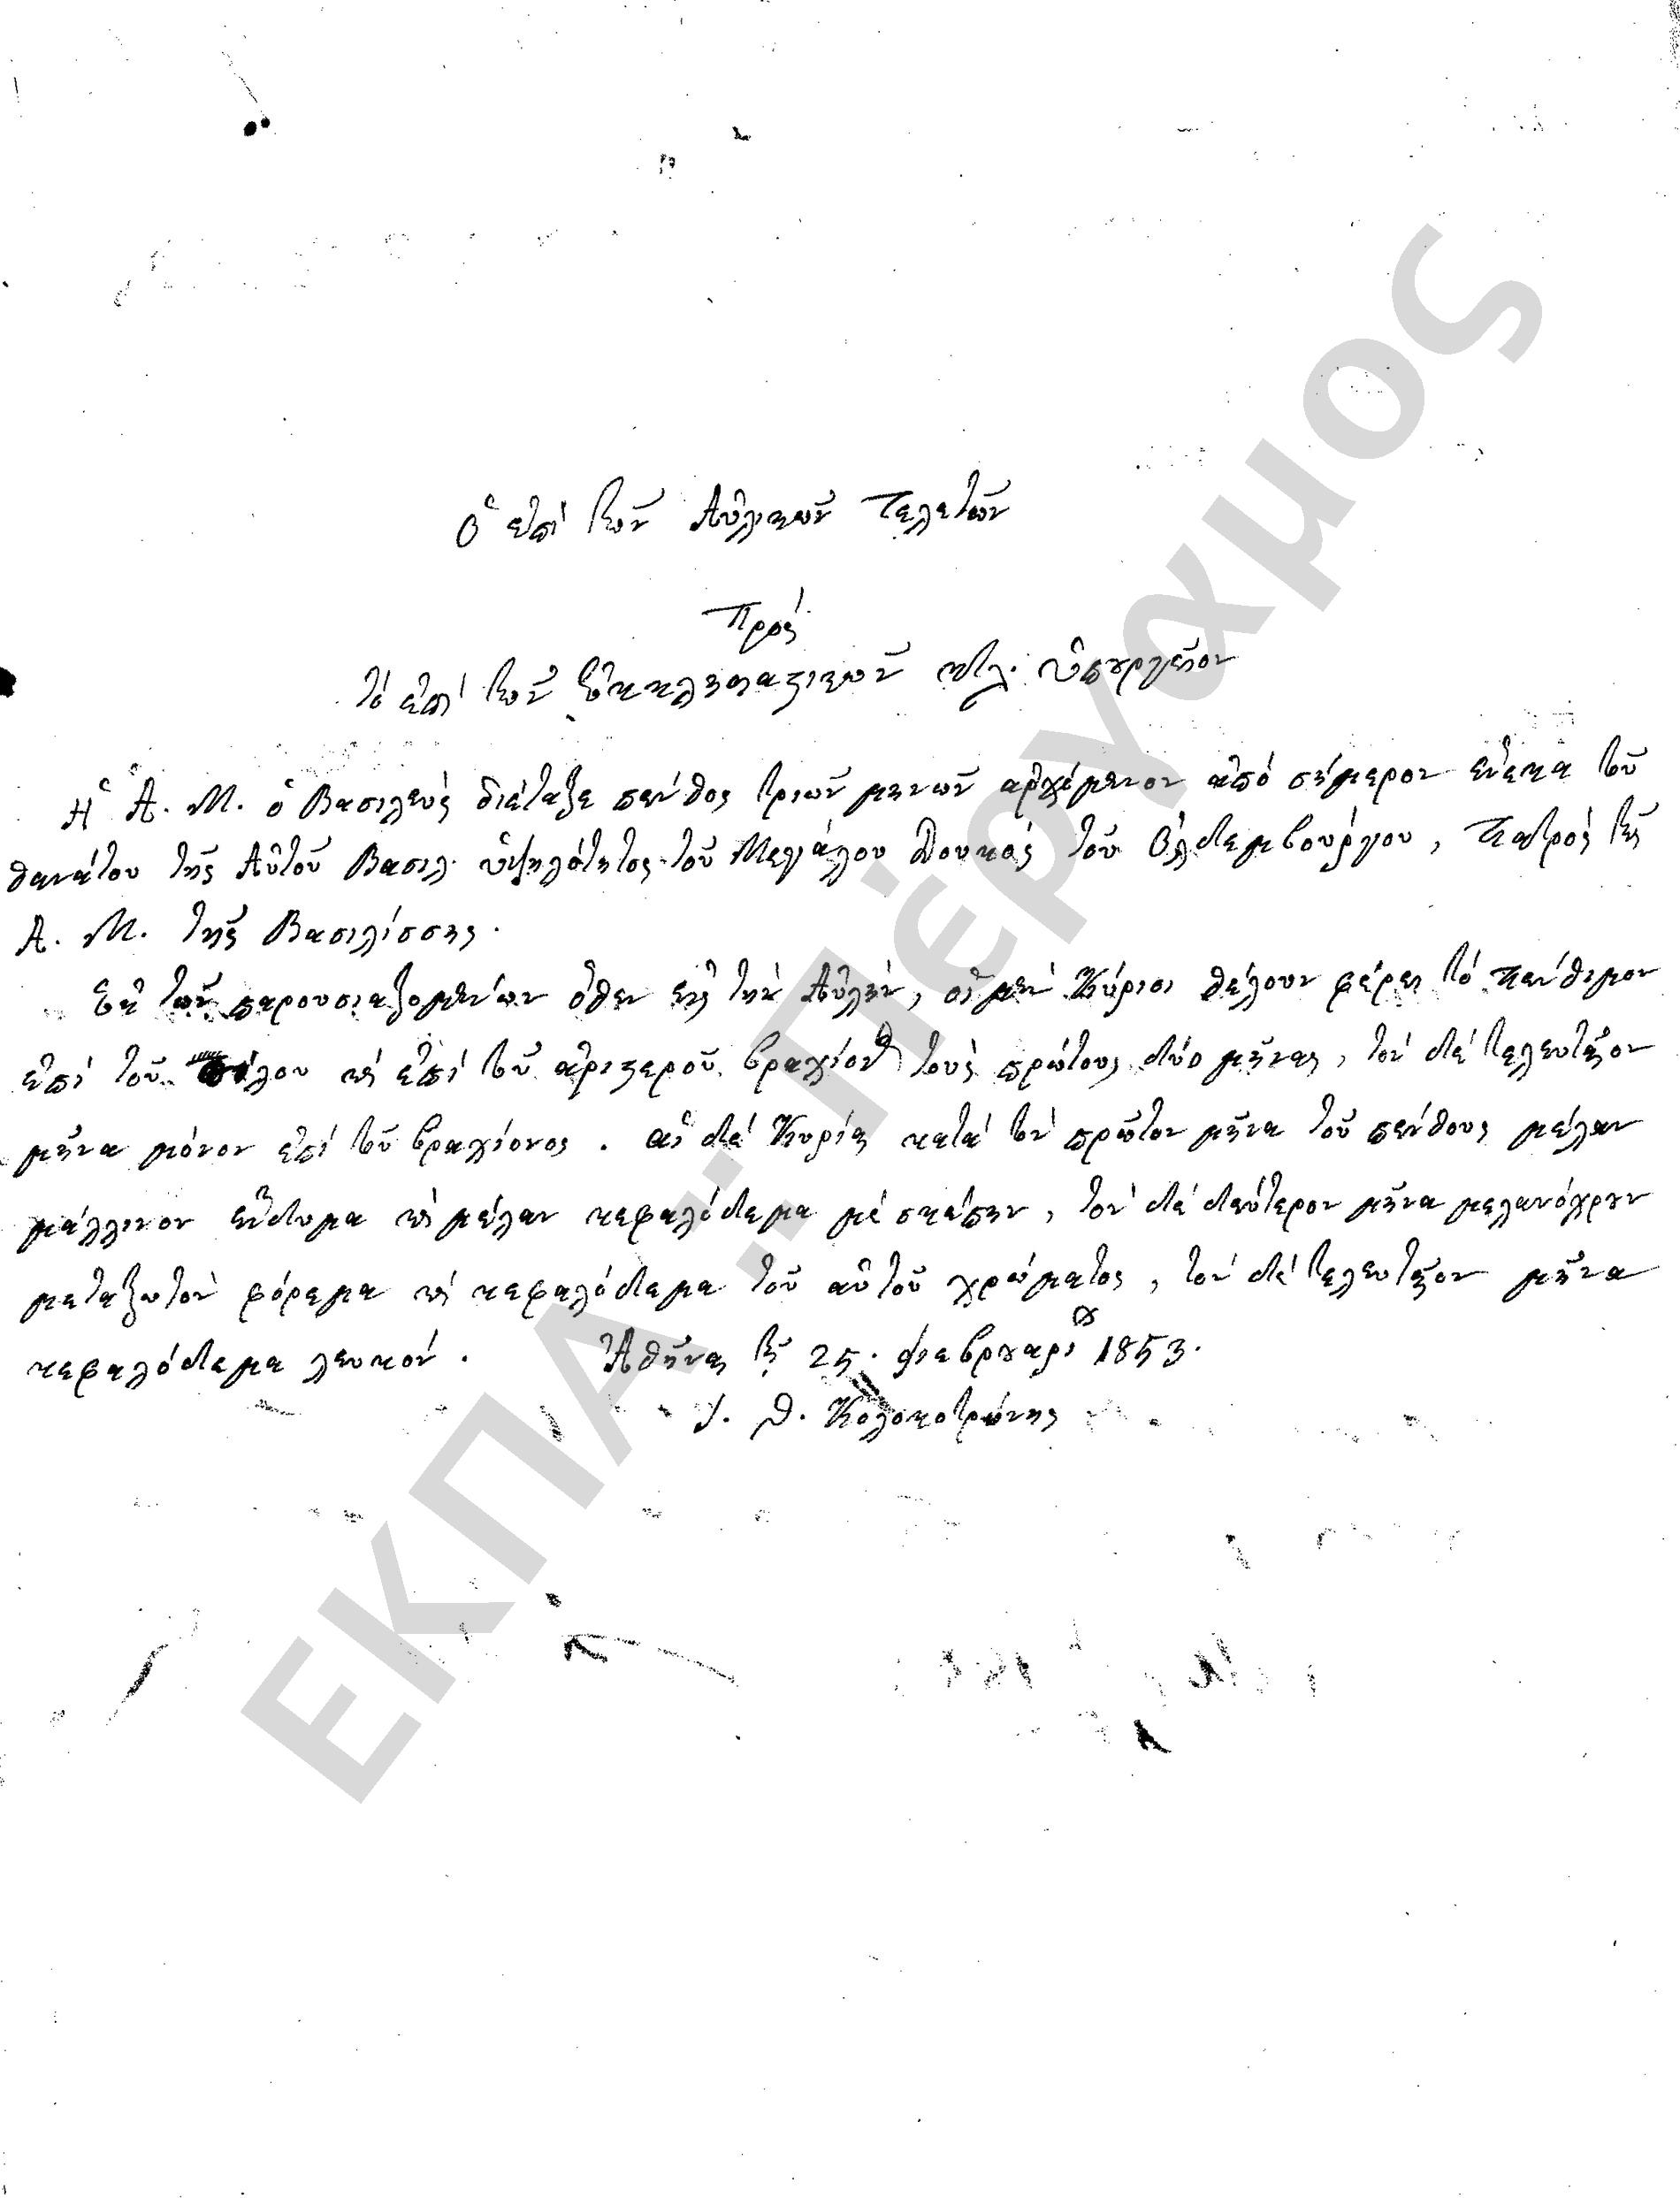 Ὁ ἐπὶ τῶν Αὐλικῶν Τελετῶν
Πρὸς
τὸ ἐπὶ τῶν Ἐκκλησιαστικῶν κτλ. ὑπουργεῖον
Ἡ Α. Μ. ὁ Βασιλεὺς διέταξε πένθος τριῶν μηνῶν ἀρχόμενον ἀπὸ σήμερον ἕνεκα τοῦ
θανάτου τῆς Αὐτοῦ Βασιλ. ὑψηλότητος τοῦ Μεγάλου Δουκὸς τοῦ Ὀλδεμβούργου, Πατρὸς τῆς
Α. Μ. τῆς Βασιλίσσης.
Ἐκ τῶν παρουσιαζομένων ὅθεν εἰς τὴν Αὐλήν, οἱ μὲν Κύριοι θέλουν φέρει τὸ πένθιμον
ἐπὶ τοῦ πίλου καὶ ἐπὶ τοῦ ἀριστεροῦ βραχίονος τοὺς πρώτους δύο μῆνας, τὸν δὲ τελευταῖον
μῆνα μόνον ἐπὶ τοῦ βραχίονος. αἱ δὲ Κυρίαι κατὰ τὸν πρῶτον μῆνα τοῦ πένθους μέλαν
μάλλινον ἔνδυμα καὶ μέλαν κεφαλόδεμα μὲ σκέπην, τὸν δὲ δεύτερον μῆνα μελανόχρουν
μεταξωτὸν φόρεμα καὶ κεφαλόδεμα τοῦ αὐτοῦ χρώματος, τὸν δὲ τελευταῖον μῆνα
κεφαλόδεμα λευκόν. Ἀθῆναι τῇ 25. Φεβρουαρίου 1853.
Γ. Θ. Κολοκοτρώνης
ΕΚΠΑ: Πέργαμος